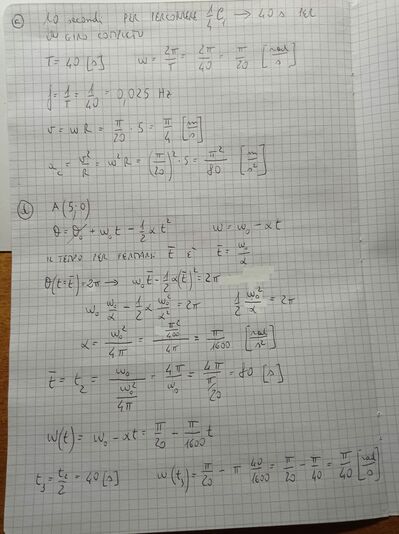 a) 10 secondi PER PERCORRERE 1/4 C, → 40 s PER
UN GIRO COMPLETO
T = 40 [s] ω = 2π/T = 2π/40 = π/20 [rad/s]
f = 1/T = 1/40 = 0,025 Hz
v = ωR = π/20 · 5 = π/4 [m/s]
a_c = v²/R = ω²R = (π/20)² · 5 = π²/80 [m/s²]
A(5;0)
θ = θ₀ + ω₀t - 1/2 αt² ω = ω₀ - αt
IL TEMPO PER FERMARSI t̄ È t̄ = ω₀/α
θ(t=t̄) = 2π → ω₀t̄ - 1/2 α(t̄)² = 2π
ω₀ ω₀/α - 1/2 α ω₀²/α² = 2π 1/2 ω₀²/α = 2π
α = ω₀²/4π = (π²/400)/4π = π/1600 [rad/s²]
t̄ = t₂ = ω₀/(ω₀²/4π) = 4π/ω₀ = 4π/(π/20) = 80 [s]
ω(t) = ω₀ - αt = π/20 - π/1600 t
t₃ = t₂/2 = 40 [s] ω(t₃) = π/20 - π 40/1600 = π/20 - π/40 = π/40 [rad/s]